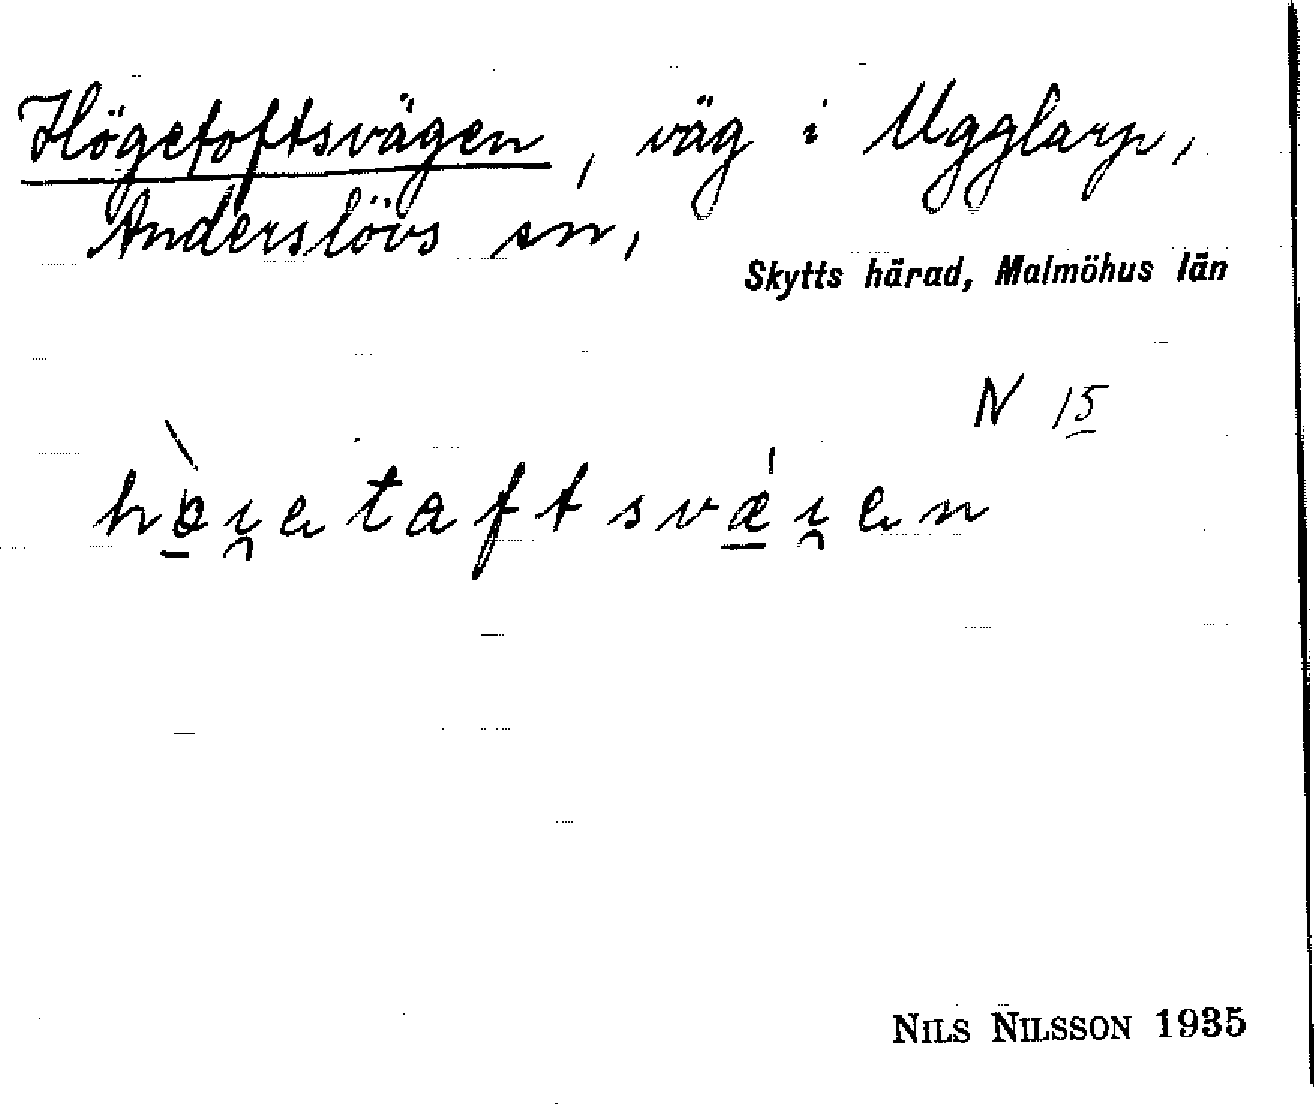 Högetoftsvägen, väg i Ugglarp,
Anderslövs sn,
Skytts härad, Malmöhus län
N 15
NILS NILSSON 1935